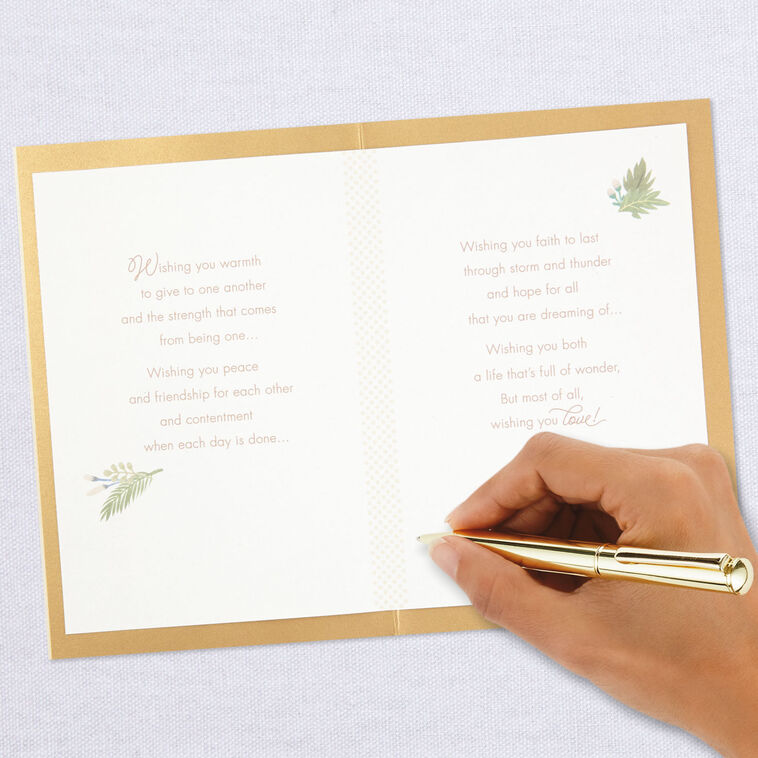 Wishing you warmth
to give to one another
and the strength that comes
from being one...
Wishing you peace
and friendship for each other
and contentment
when each day is done...
Wishing you faith to last
through storm and thunder
and hope for all
that you are dreaming of...
Wishing you both
a life that's full of wonder,
But most of all,
wishing you love!